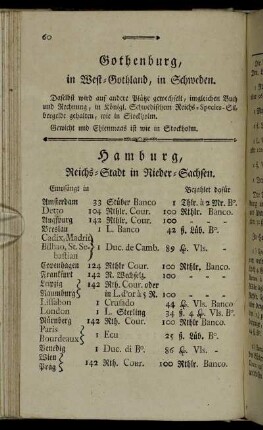 60
Gothenburg,
in West-Gothland, in Schweden.
Daselbst wird auf andere Plätze gewechselt, imgleichen Buch
und Rechnung, in Königl. Schwedischem Reichs-Species-Sil-
bergelde gehalten, wie in Stockholm.
Gewicht und Ehlenmaas ist wie in Stockholm.
Hamburg,
Reichs-Stadt in Nieder-Sachsen.
Empfängt in Bezahlet dafür
Amsterdam 33 Stüber Banco 1 Thlr. à 2 Mr. Bo.
Detto 104 Rthlr. Cour. 100 Rthlr. Banco.
Augsburg 142 Rthlr. Cour. 100
Breslau 1 L. Banco 42 ß. Lüb. Bo.
Cadix, Madrid
Bilbao, St. Se-
bastian 1 Duc. de Camb. 89 Vls.
Copenhagen 124 Rthlr Cour. 100 Rthlr Banco.
Frankfurt 142 R. Wechselz. 100
Leipzig 142 Rth. Cour. oder
Naumburg in L.d'or à 5 R. 100
Lissabon 1 Crusado 44 Vls.
London 1 L. Sterling 34 ß. 4 Vls. Bo.
Nürnberg 142 Rth. Cour. 100 Rthlr Banco.
Paris
Bourdeaux 1 Ecu 25 ß. Lüb. Bo.
Venedig 1 Duc. di Bo. 86 Vls.
Wien
Prag 142 Rth. Cour. 100 Rthlr. Banco.